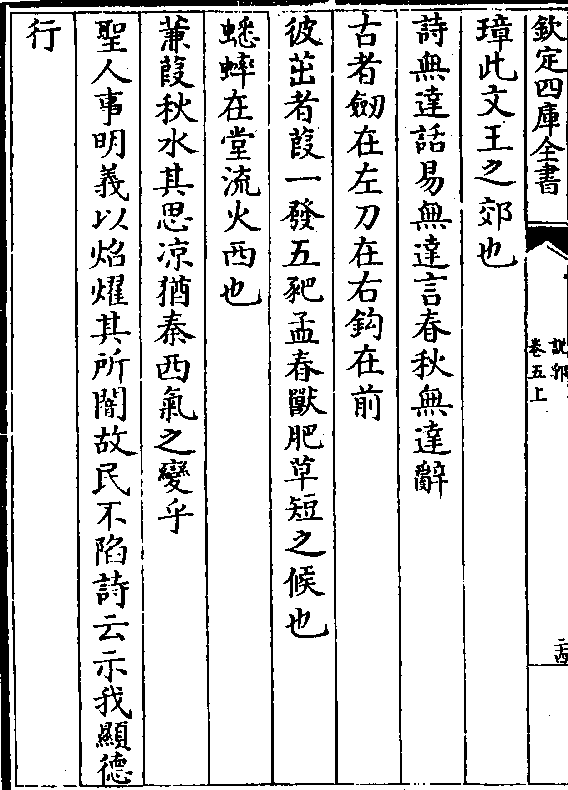 欽定四庫全書
說郛
卷五上
璋此文王之郊也
詩無達詁易無達言春秋無達辭
古者劒在左刀在右鈎在前
彼茁者葭一發五豝孟春獸肥草短之候也
蟋蟀在堂流火西也
蒹葭秋水其思凉猶秦西氣之變乎
聖人事明義以焰燿其所闇故民不陷詩云示我顯德
行